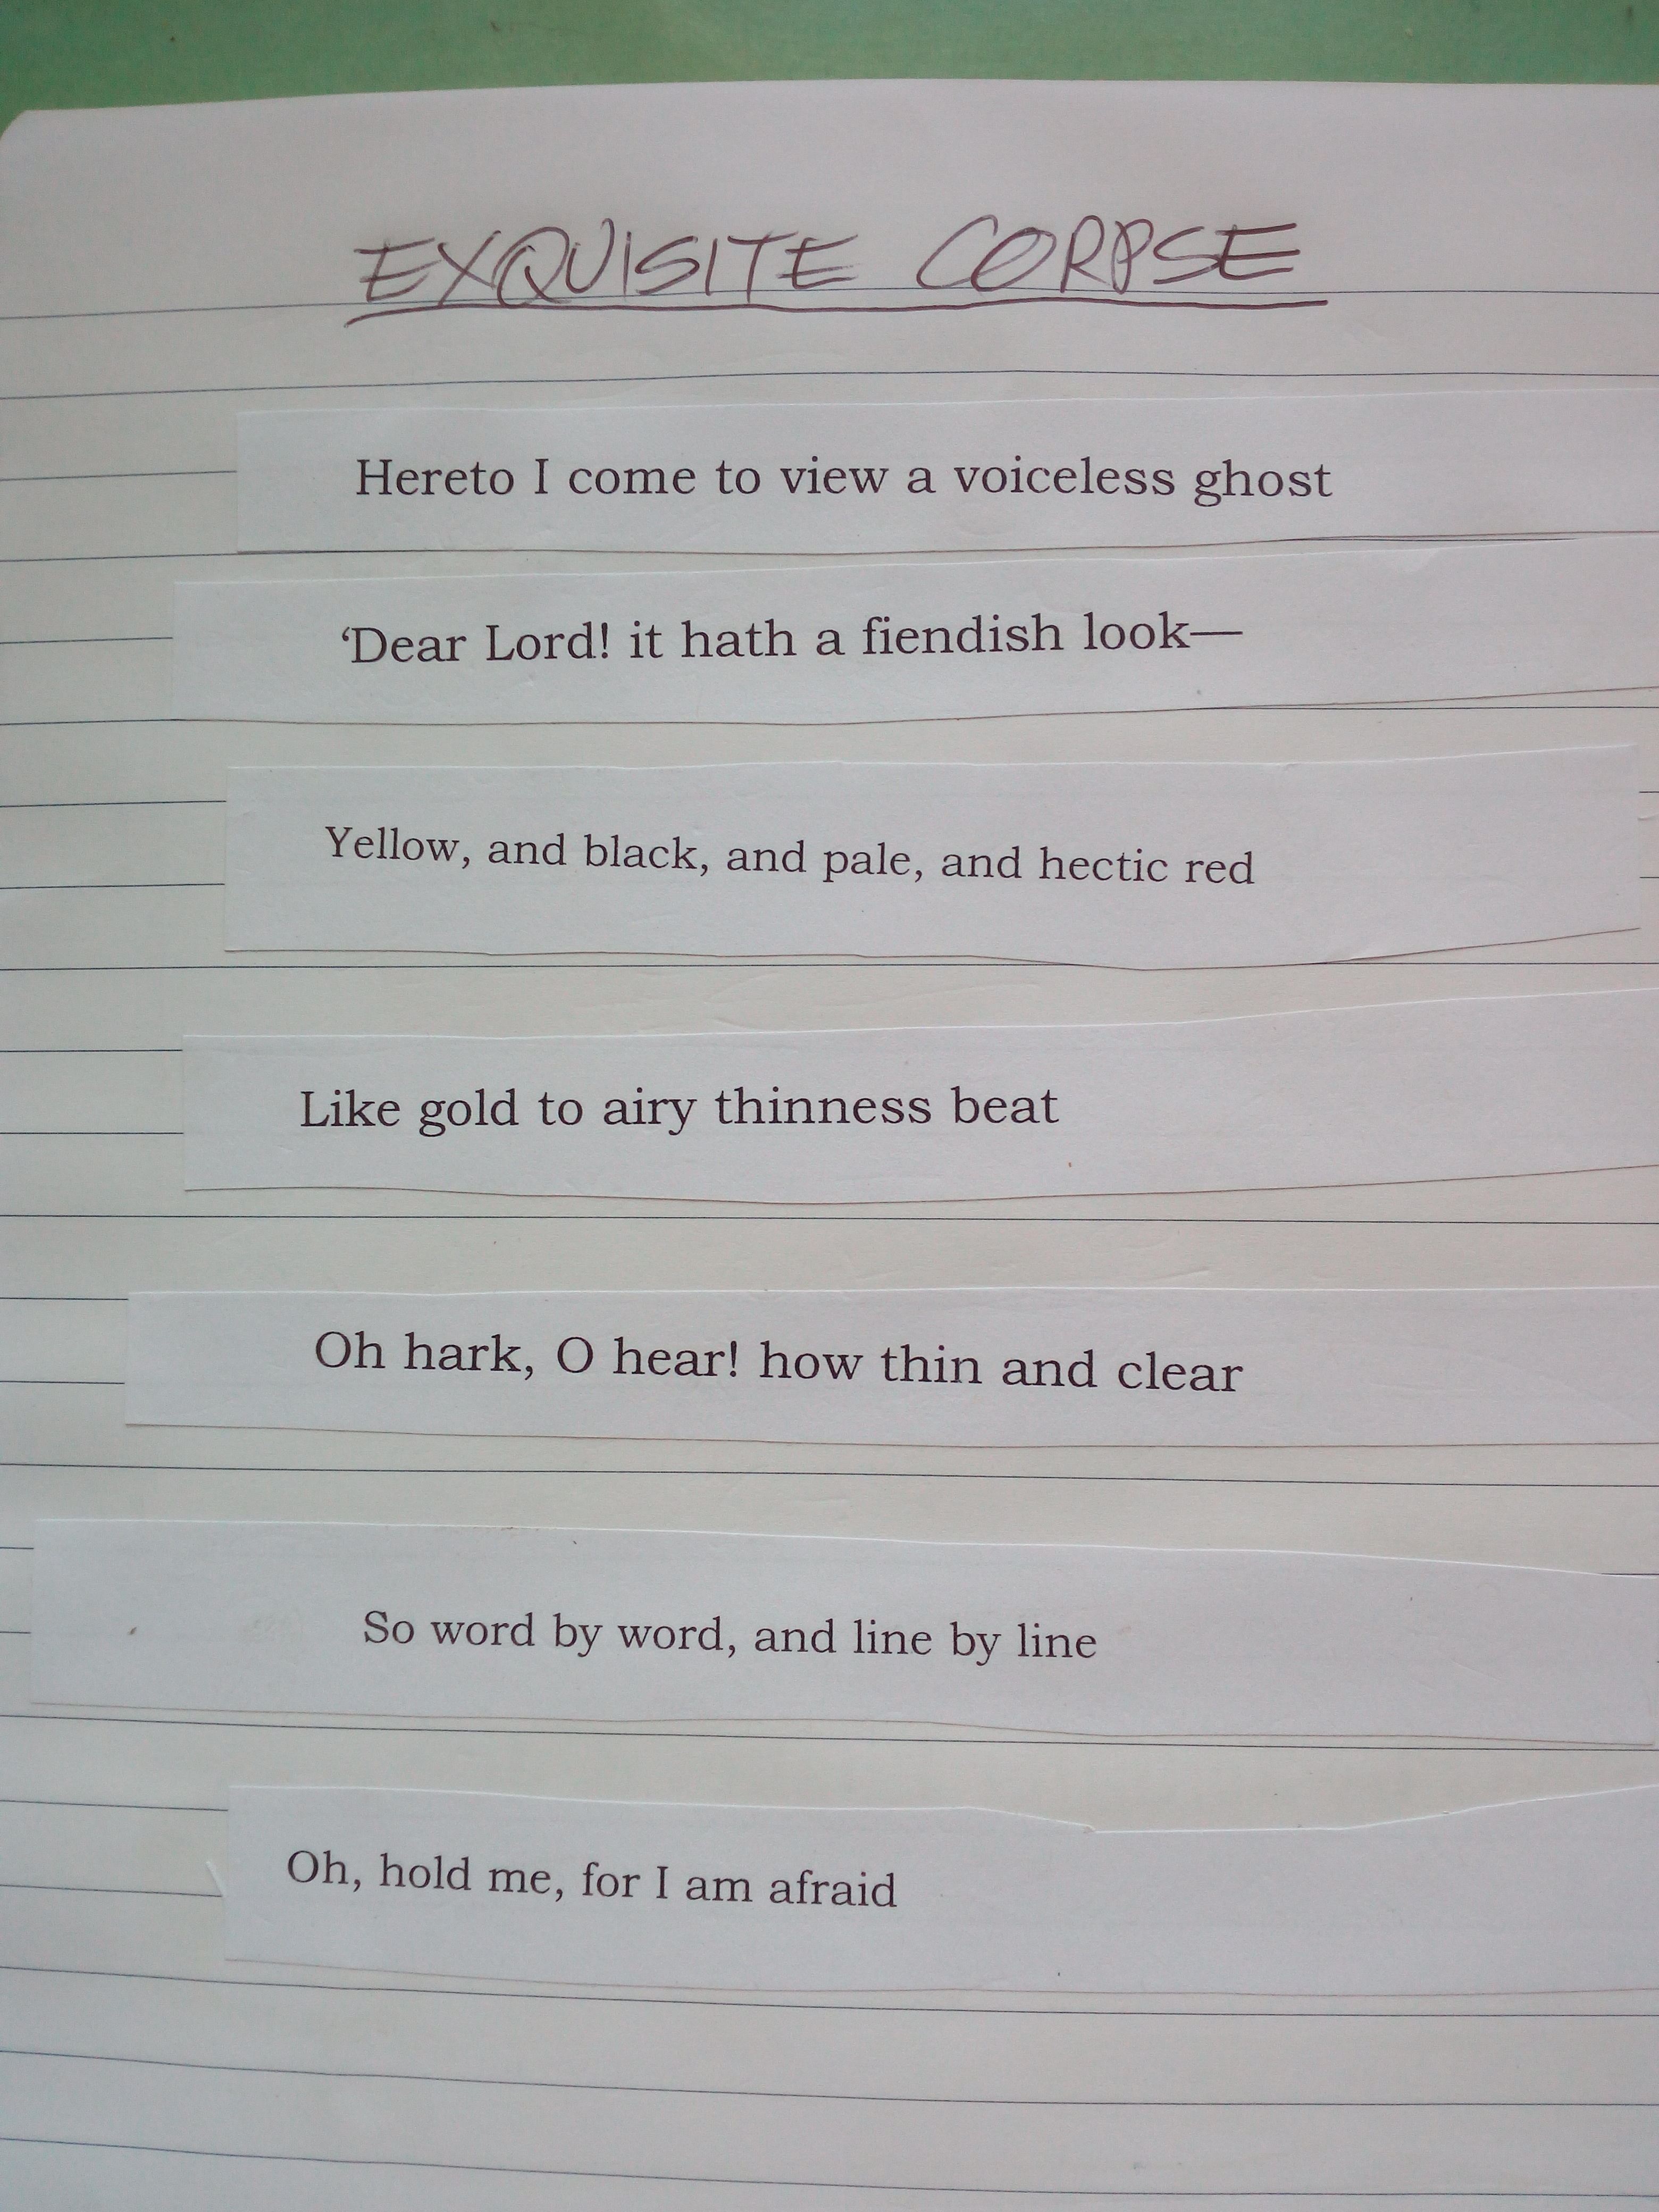 EXQUISITE CORPSE
Hereto I come to view a voiceless ghost
‘Dear Lord! it hath a fiendish look—
Yellow, and black, and pale, and hectic red
Like gold to airy thinness beat
Oh hark, O hear! how thin and clear
So word by word, and line by line
Oh, hold me, for I am afraid